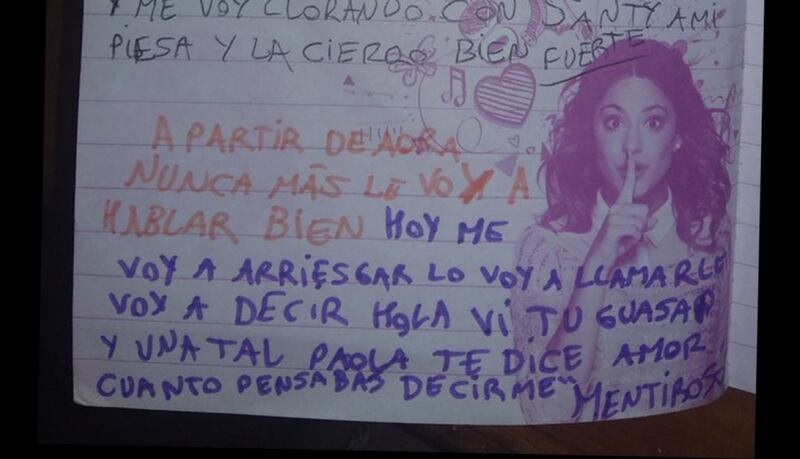 Y ME VOY LLORANDO CON SANTY A MI
PIESA Y LA CIERRO BIEN FUERTE
A PARTIR DE AORA
NUNCA MÁS LE VOY A
HABLAR BIEN HOY ME
VOY A ARRIESGAR LO VOY A LLAMAR LE
VOY A DECIR HOLA VI TU GUASAP
Y UNA TAL PAOLA TE DICE AMOR
CUANTO PENSABAS DECIRME" MENTIROSO